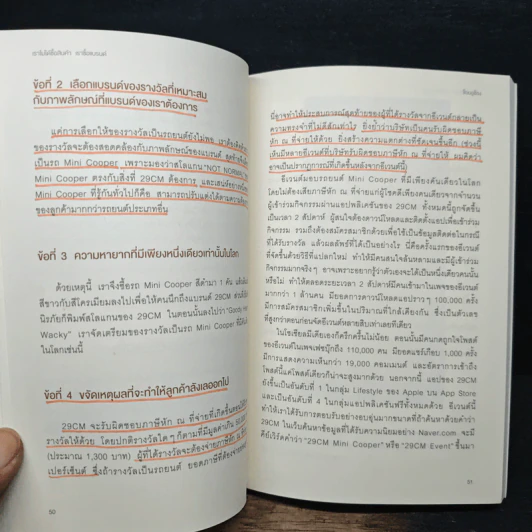 เราไม่ได้ซื้อสินค้า เราซื้อแบรนด์
ข้อที่ 2 เลือกแบรนด์ของรางวัลที่เหมาะสม
กับภาพลักษณ์ที่แบรนด์ของเราต้องการ
แค่การเลือกให้ของรางวัลเป็นรถยนต์ยังไม่พอ
รางวัลจะต้องสอดคล้องกับภาพลักษณ์ของแบรนด์
เป็นรถ Mini Cooper เพราะมองว่าสโลแกน "NOT NORMAL"
Mini Cooper ตรงกับสิ่งที่ 29CM ต้องการ และเสน่ห์อย่างหนึ่ง
Mini Cooper ที่รู้กันทั่วไปก็คือ สามารถปรับแต่งได้ตามความ
ของลูกค้ามากกว่ารถยนต์ประเภทอื่น
ข้อที่ 3 ความหายากที่มีเพียงหนึ่งเดียวเท่านั้นในโลก
ด้วยเหตุนี้ เราจึงซื้อรถ Mini Cooper สีดำมา 1 คัน
สีขาวกับสีโครเมียมลงไปเพื่อให้คนนึกถึงแบรนด์ 29CM
นิรภัยก็พิมพ์สโลแกนของ 29CM ในตอนนั้นลงไปว่า "Goody
Wacky" เราจัดเตรียมของรางวัลเป็นรถ Mini Cooper
ในโลกเช่นนี้
ข้อที่ 4 ขจัดเหตุผลที่จะทำให้ลูกค้าลังเลออกไป
29CM จะรับผิดชอบภาษีหัก ณ ที่จ่ายที่เกิดขึ้น
รางวัลให้ด้วย โดยปกติรางวัลใด ๆ ก็ตามที่มีมูลค่าเกิน
(ประมาณ 1,300 บาท) ผู้ที่ได้รางวัลจะต้องจ่ายภาษีหัก ณ
เปอร์เซ็นต์ ซึ่งถ้ารางวัลเป็นรถยนต์ ยอดภาษีที่ต้องจ่าย
50
นี่อาจทำให้ประสบการณ์สุดท้ายของผู้ที่ได้รางวัลจากอีเวนต์กลายเป็น
ความทรงจำที่ไม่ดีสักเท่าไร ยิ่งย้ำว่าบริษัทเป็นคนรับผิดชอบภาษี
หัก ณ ที่จ่ายให้ด้วย ยิ่งสร้างความแตกต่างที่ชัดเจนขึ้นอีก (ช่วงนี้
เห็นมีหลายอีเวนต์ที่บริษัทรับผิดชอบภาษีหัก ณ ที่จ่ายให้ ผมคิดว่า
อาจเป็นปรากฏการณ์ที่เกิดขึ้นหลังจากอีเวนต์นี้)
อีเวนต์มอบรถยนต์ Mini Cooper ที่มีเพียงคันเดียวในโลก
โดยไม่ต้องเสียภาษีหัก ณ ที่จ่ายแก่ผู้โชคดีเพียงคนเดียวจากจำนวน
ผู้เข้าร่วมกิจกรรมผ่านแอปพลิเคชันของ 29CM ทั้งหมดนี้ถูกจัดขึ้น
เป็นเวลา 2 สัปดาห์ ผู้สนใจต้องดาวน์โหลดและติดตั้งแอปเพื่อเข้าร่วม
กิจกรรม รวมถึงต้องสมัครสมาชิกด้วยเพื่อใช้เป็นข้อมูลติดต่อในกรณี
ที่ได้รับรางวัล แล้วผลลัพธ์ที่ได้เป็นอย่างไร นี่คือครั้งแรกของอีเวนต์
ที่จัดขึ้นด้วยวิธีที่แปลกใหม่ ทำให้มีคนสนใจล้นหลามและมีผู้เข้าร่วม
กิจกรรมมากจริงๆ อาจเพราะอยากรู้ว่าตัวเองจะได้เป็นหนึ่งเดียวคนนั้น
หรือไม่ ทำให้ตลอดระยะเวลา 2 สัปดาห์มีคนเข้ามาในเพจของอีเวนต์
มากกว่า 1 ล้านคน มียอดการดาวน์โหลดแอปราวๆ 100,000 ครั้ง
มีการสมัครสมาชิกเพิ่มขึ้นในปริมาณที่ใกล้เคียงกัน ซึ่งเป็นตัวเลข
ที่สูงกว่าตอนก่อนจัดอีเวนต์หลายสิบเท่าเลยทีเดียว
ในโซเชียลมีเดียเองก็คึกครื้นขึ้นไม่น้อย ตอนนั้นมีคนกดถูกใจโพสต์
ของอีเวนต์ในเพจเฟซบุ๊กถึง 110,000 คน มียอดแชร์เกือบ 1,000 ครั้ง
มีการแสดงความเห็นกว่า 19,000 คอมเมนต์ และอัตราการเข้าถึง
โพสต์นี้แค่โพสต์เดียวก็น่าจะสูงมากด้วย นอกจากนี้ แอปของ 29CM
ยังขึ้นเป็นอันดับที่ 1 ในกลุ่ม Lifestyle ของ Apple บน App Store
และเป็นอันดับที่ 4 ในกลุ่มแอปพลิเคชันฟรีทั้งหมดด้วย อีเวนต์นี้
ทำให้เราได้รับการตอบรับอย่างอบอุ่นมากขนาดที่ถ้าค้นหาด้วยคำว่า
29CM ในเว็บค้นหาข้อมูลที่ได้รับความนิยมอย่าง Naver.com จะมี
คีย์เวิร์ดคำว่า "29CM Mini Cooper" หรือ "29CM Event" ขึ้นมา
51